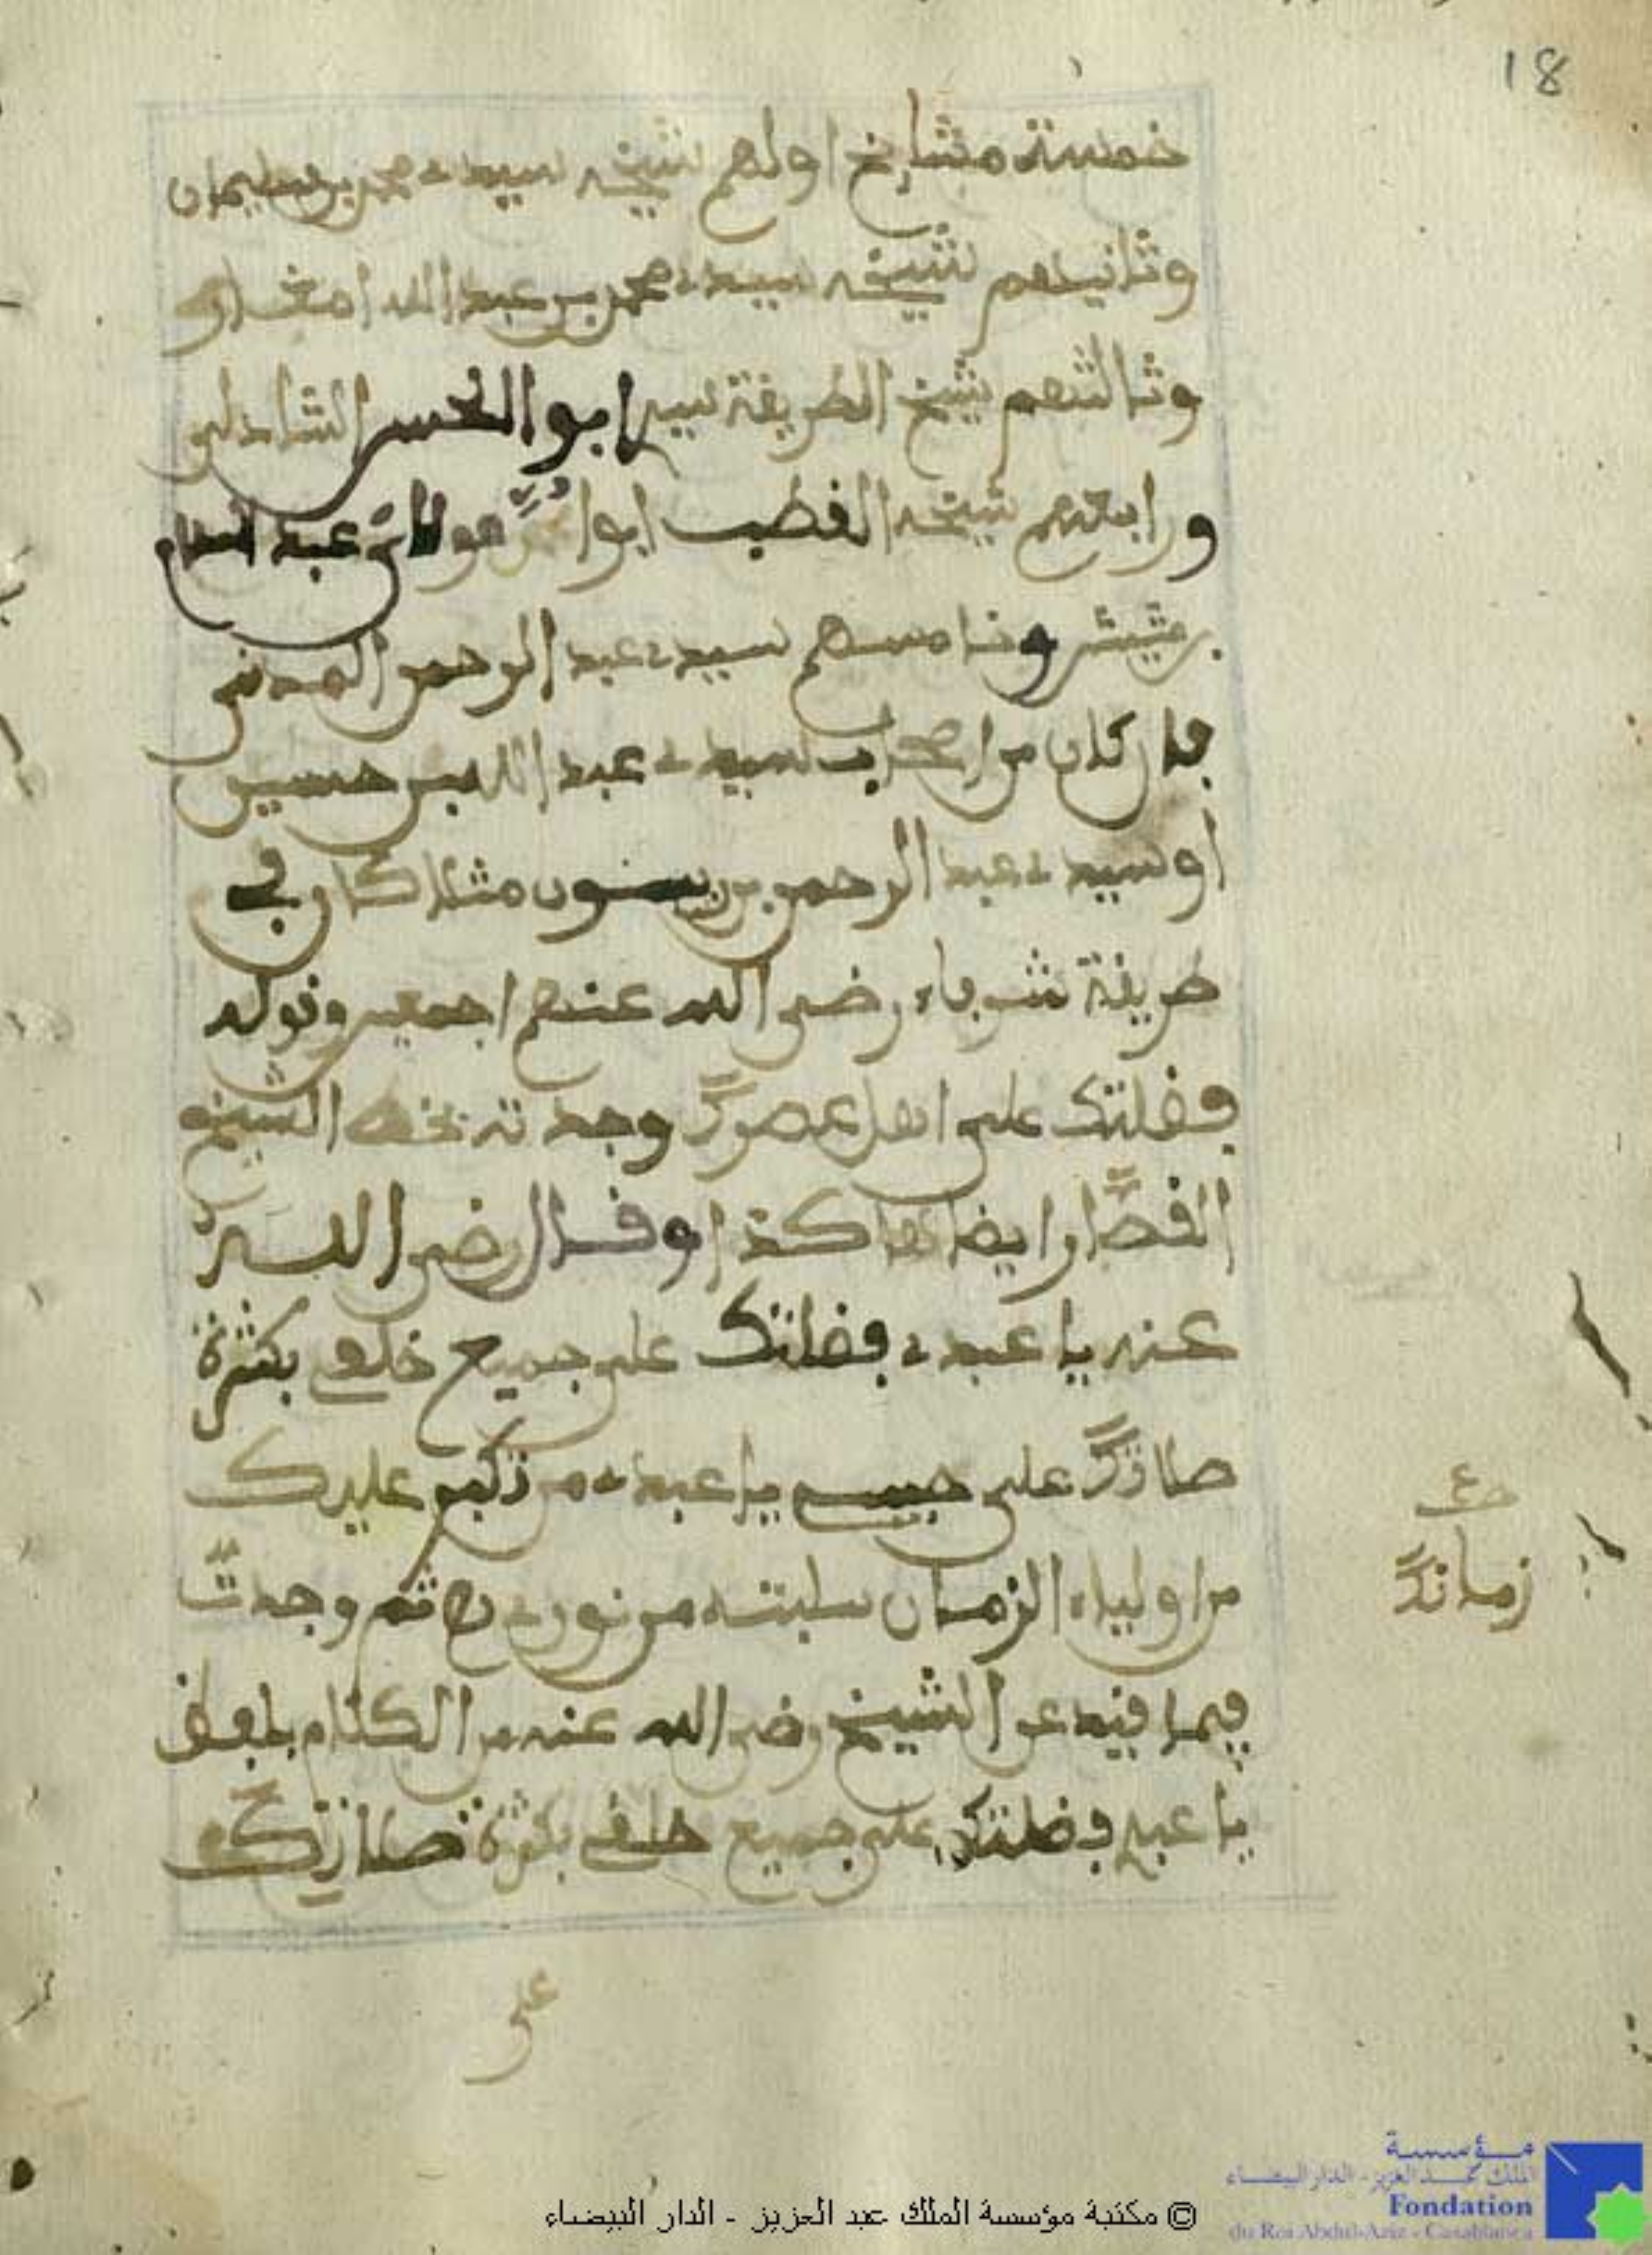 18
خمسة مشايخ اولهم شيخه سيدي محمد بن سليمان
وثانيهم شيخه سيدي محمد بن عبد الله امغار
وثالثهم شيخ الطريقة سيد ابو الحسن الشاذلي
ورابعهم شيخه القطب ابوا مولاي عبد السلام
بن مشيش وخامسهم سيدي عبد الرحمن المدني
كان من اصحاب سيدي عبد الله بن حسين
او سيدي عبد الرحمن بن مثلا كان في
طريقة شرباء رضي الله عنهم اجمعين وقوله
فضلتك على اهل عصرك وجدته بخط الشيخ
القصار ايضا هاكذا وقال رضي الله
عنه يا عبدي فضلتك على جميع خلقي بكثرة
صلاتك على حبيبي يا عبدي من تكبر عليك
من اولياء الزمان سلبته من نوري ح ثم وجدت
فيما قيد عن الشيخ رضي الله عنه من الكلام بلفظ
يا عبدي فضلتك على جميع خلقي بكثرة صلاتك
زمانك
على
© مكتبة مؤسسة الملك عبد العزيز - الدار البيضاء
مؤسسة
الملك عبد العزيز - الدار البيضاء
Fondation
du Roi Abdul-Aziz - Casablanca